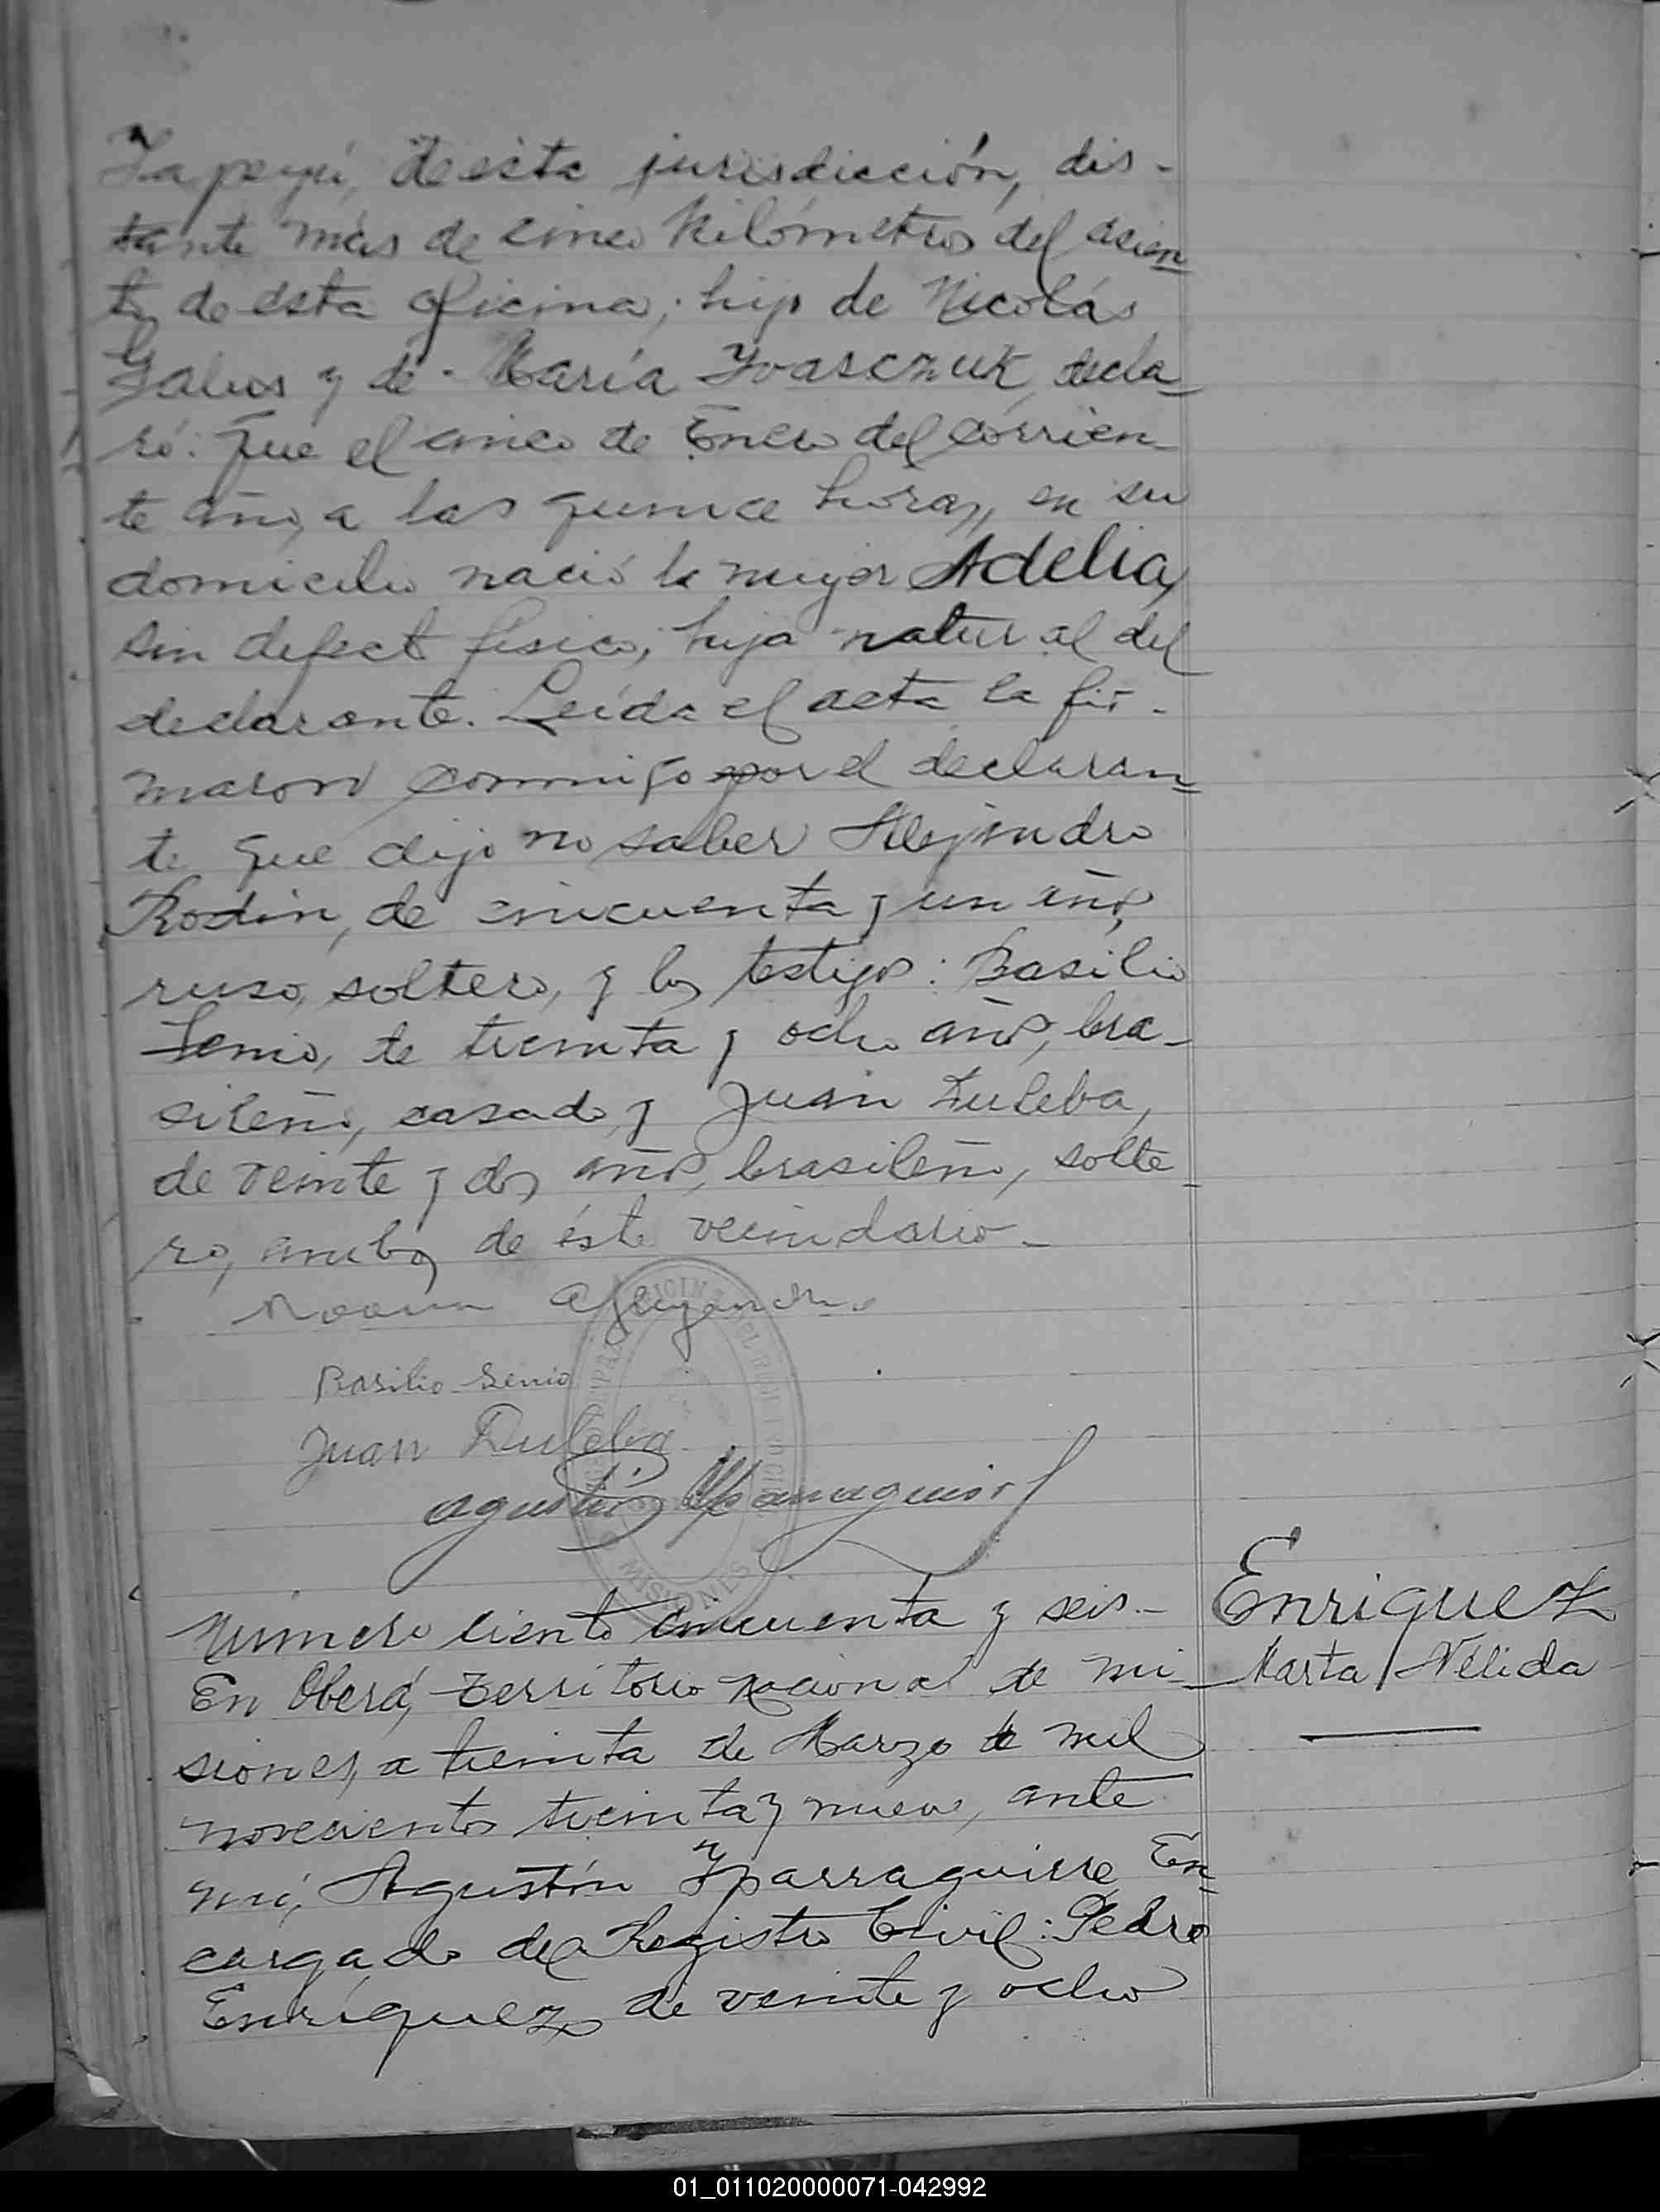 Yapeyú, de ésta jurisdicción, dis-
tante más de cinco Kilómetros del asien
to de ésta oficina; hijo de Nicolás
Galus y de María Ivasczuk, decla
ró: Que el cinco de Enero del corrien
te año, a las quince horas, en su
domicilio nació la mujer Adelia,
sin defecto físico, hija natural del
declarante. Leída el acta la fir-
maron conmigo por el declaran
te que dijo no saber Alejandro
Rodin, de cincuenta y un años,
ruso, soltero, y los testigos: Basilio
Senio, de treinta y ocho años, bra-
sileño, casado, y Juan Duleba,
de veinte y dos años, brasileño, solte
ro, ambos de éste vecindario-
Basilio Senio
Juan Duleba
Agustín Yparraguirre
MISIONES
Número ciento cincuenta y seis-
En Oberá, Territorio Nacional de Mi-
siones, a treinta de Marzo de mil
novecientos treinta y nueve, ante
mí, Agustín Yparraguirre En
cargado del Registro Civil: Pedro
Enríquez de veinte y ocho
Enriquez
Marta Nélida
01_011020000071-042992